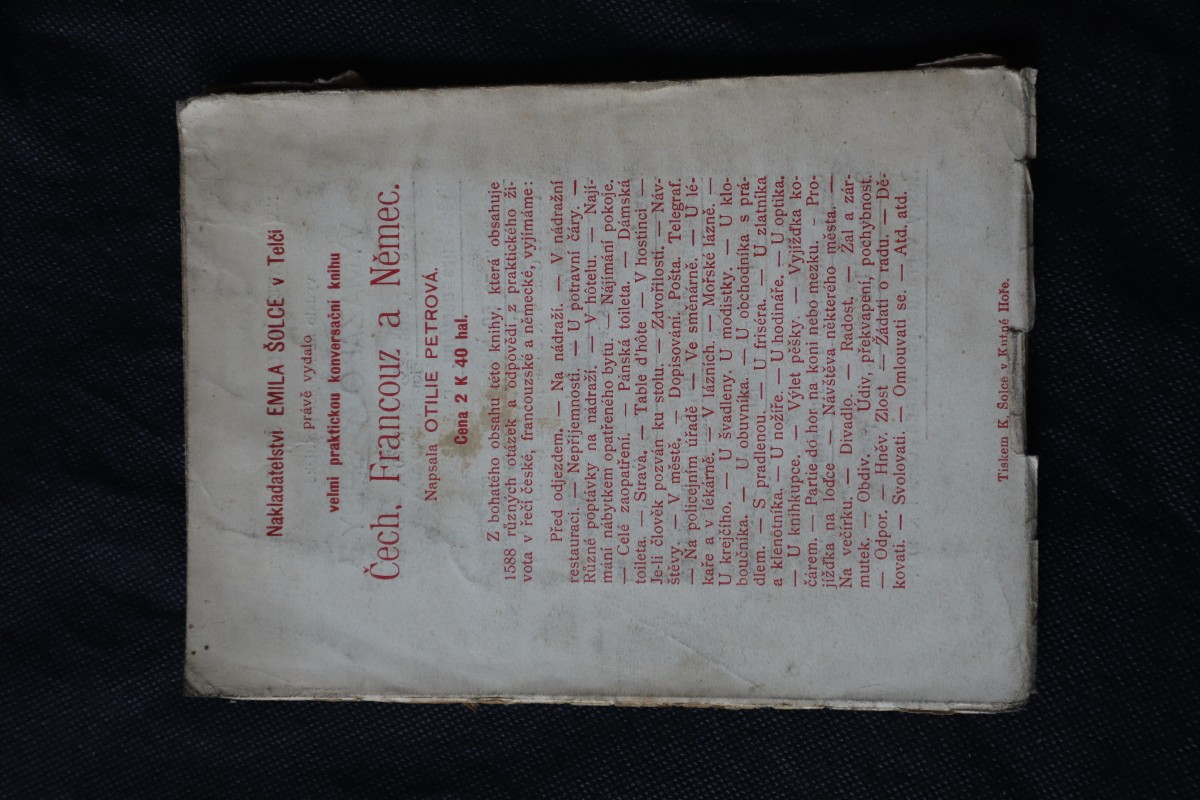 Nakladatelství EMILA ŠOLCE v Telči
právě vydalo
velmi praktickou konversační knihu
Čech, Francouz a Němec.
Napsala OTILIE PETROVÁ.
Cena 2 K 40 hal.
Z bohatého obsahu této knihy, která obsahuje
1588 různých otázek a odpovědí z praktického ži-
vota v řeči české, francouzské a německé, vyjímáme:
Před odjezdem. — Na nádraží. — V nádražní
restauraci. — Nepříjemnosti. — U potravní čáry. —
Různé poptávky na nádraží. — V hôtelu. — Nají-
mání nábytkem opatřeného bytu. — Najímání pokoje.
— Celé zaopatření. — Pánská toileta. — Dámská
toileta. — Strava. — Table d'hôte — V hostinci —
Je-li člověk pozván ku stolu. — Zdvořilosti. — Náv-
štěvy. — V městě. — Dopisování. Pošta. Telegraf.
— Na policejním úřadě — Ve směnárně. — U lé-
kaře a v lékárně. — V lázních. — Mořské lázně. —
U krejčího. — U švadleny. U modistky. — U klo-
boučníka. — U obuvníka. — U obchodníka s prá-
dlem. — S pradlenou. — U friséra. — U zlatníka
a klenótníka. — U nožíře. — U hodináře. — U optika.
— U knihkupce. — Výlet pěšky. — Vyjížďka ko-
čárem. — Partie do hor na koni nebo mezku. - Pro-
jížďka na loďce — Návštěva některého města. —
Na večírku. — Divadlo. — Radost, — Žal a zár-
mutek. — Obdiv. — Údiv, překvapení, pochybnost.
— Odpor. — Hněv. Zlost — Žádati o radu. — Dě-
kovati. — Svolovati. — Omlouvati se. — Atd. atd.
Tiskem K. Šolce v Kutné Hoře.